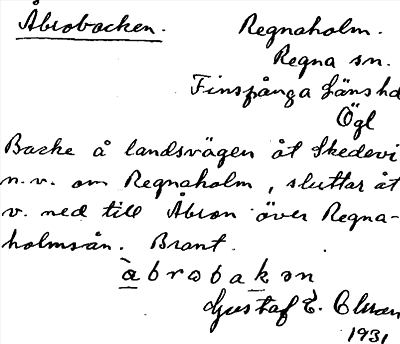 Åbrobacken. Regnaholm.
Regna sn.
Finspånga länshd
Ögl
Backe å landsvägen åt Skedevi
n.v. om Regnaholm, sluttar åt
v. ned till Åbron över Regna-
holmsån. Brant.
åbrobakən
Gustaf E.
1931